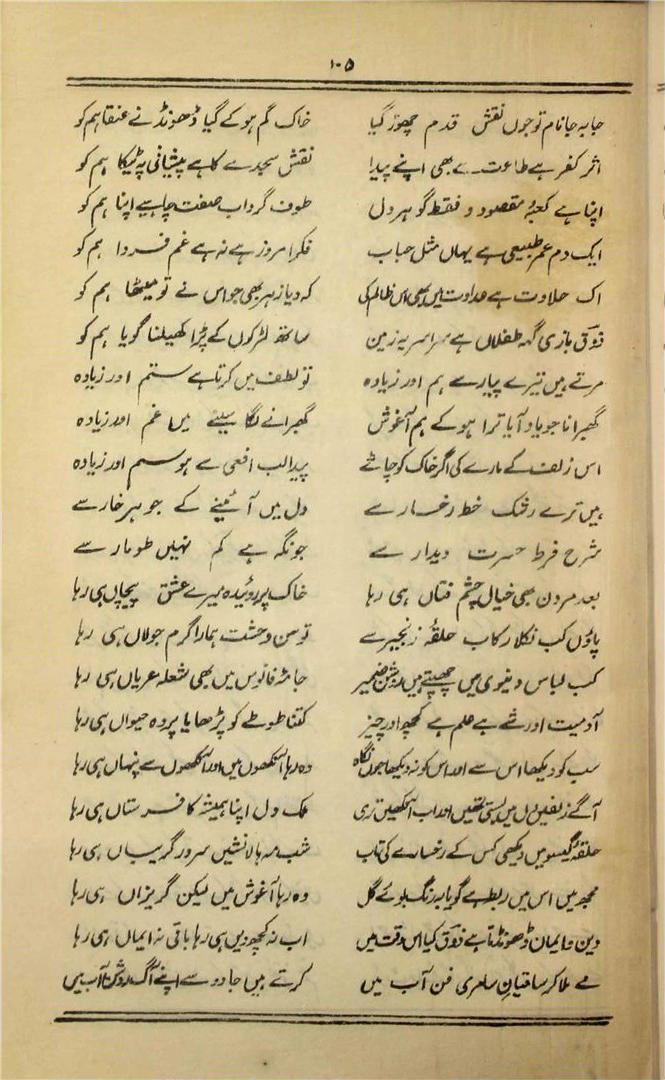 ۱۰۵
جا بہ جا نام تو جوں نقش قدم چھوڑ گیا خاک گم ہو کے گیا ڈھونڈنے عنقا ہم کو
اثر کفر ہے طاعت سے بھی اپنے پیدا نقش سجدے کا ہے پیشانی پہ ٹیکا ہم کو
اپنا ہے کعبۂ مقصود و فقط گوہر دل طوف گرداب صفت چاہیے اپنا ہم کو
ایک دم عمر طبیعی ہے یہاں مثل حباب فکر امروز ہے نہ ہے غم فردا ہم کو
اک حلاوت ہے عداوت میں بھی اس ظالم کی کہ دیا زہر بھی جو اس نے تو میٹھا ہم کو
ذوق بازی گہہ طفلاں ہے سراسر یہ زمین ساتھ لڑکوں کے پڑا کھیلنا گویا ہم کو
مرتے ہیں تیرے پیارے ہم اور زیادہ تو لطف میں کرتا ہے ستم اور زیادہ
گھبرانا جو یاد آیا ترا ہو کے ہم آغوش گھبرانے لگا سینے میں غم اور زیادہ
اس زلف کے مارے کی اگر خاک کو چاٹے پیدا لب افعی سے ہو سم اور زیادہ
ہیں ترے رشک خط رخسار سے دل میں آئینے کے جوہر خار سے
شرح فرط حسرت دیدار سے جو نگہ ہے کم نہیں طومار سے
بعد مردن بھی خیال چشم فتاں ہی رہا خاک پر روئیدہ میرے عشق پیچاں ہی رہا
پاؤں کب نکلا رکاب حلقۂ زنجیر سے توسن وحشت ہمارا گرم جولاں ہی رہا
کب لباس دنیوی میں چھپتے ہیں روشن ضمیر جامۂ فانوس میں بھی شعلہ عریاں ہی رہا
آدمیت اور شے ہے علم ہے کچھ اور چیز کتنا طوطے کو پڑھایا پر وہ حیواں ہی رہا
سب کو دیکھا اس سے اور اس کو نہ دیکھا جوں نگاہ وہ رہا آنکھوں میں اور آنکھوں سے پنہاں ہی رہا
آگے زلفیں دل میں بستی تھیں اور اب آنکھیں تری ملک دل اپنا ہمیشہ کافرستاں ہی رہا
حلقۂ گیسو میں دیکھی کس کے رخسارے کی تاب شب مہ ہالا نشیں سر در گریباں ہی رہا
مجھ میں اس میں ربط ہے گویا بہ رنگ بوئے گل وہ رہا آغوش میں لیکن گریزاں ہی رہا
دین و ایمان ڈھونڈتا ہے ذوق کیا اس وقت میں اب نہ کچھ دیں ہی رہا باقی نہ ایماں ہی رہا
مے ملا کر ساقیان سامری فن آب میں کرتے ہیں جادو سے اپنے آگ روشن آب میں